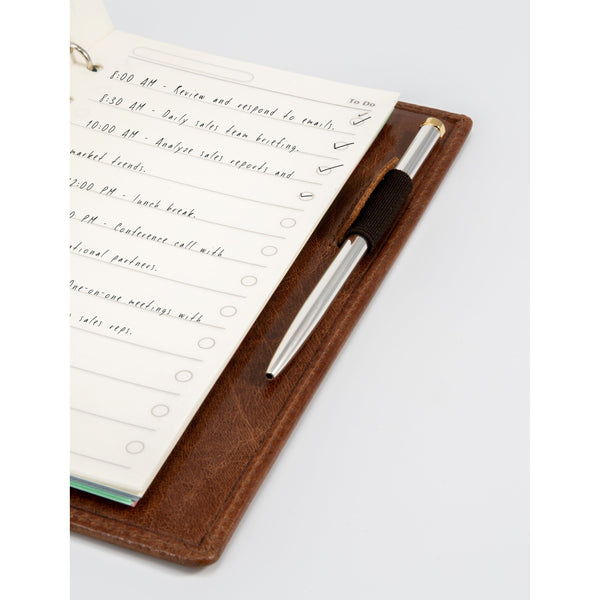 To Do
8:00 AM - Review and respond to emails.
8:30 AM - Daily sales team briefing.
10:00 AM - Analyze sales reports and
market trends.
2:00 PM - lunch break.
0 PM - Conference call with
ational partners.
One-on-one meetings with
sales reps.